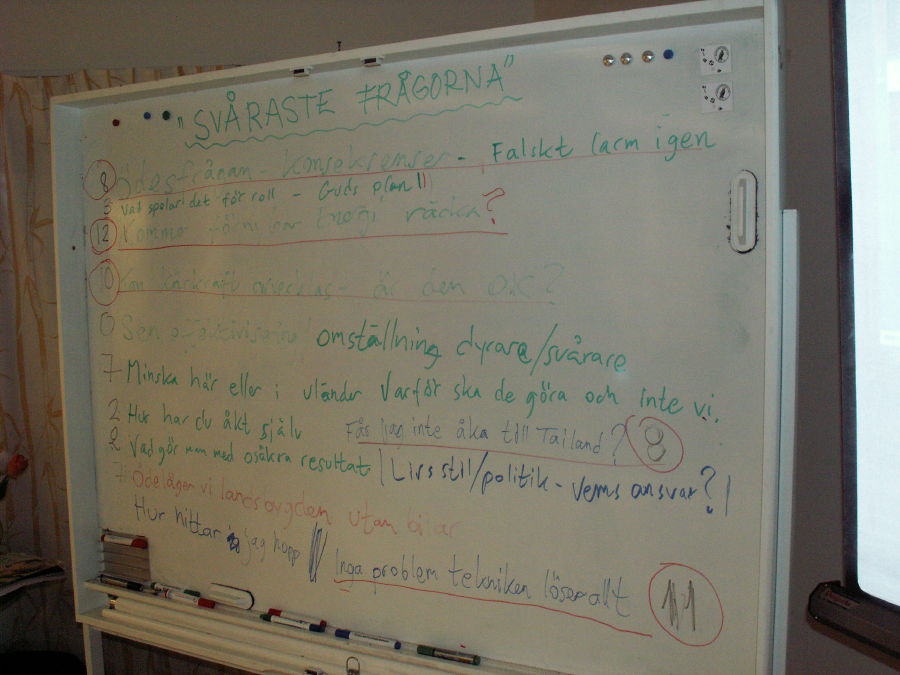 "SVÅRASTE FRÅGORNA"
8 Ödesfrågan - konsekvenser - Falskt larm igen
3 Vad spelar det för roll - Guds plan
12 Kommer för Energi räcka?
10 Kan kärkraft avecklas - är den OK?
0 Sen omställning dyrare/svårare
7 Minska här eller i uländer Varför ska de göra och inte vi.
2 Hur har du åkt själv Fås jag inte åka till Tailand? 8
2 Vad gör man med osäkra resultat Livsstil/politik - vems ansvar?
7 Ödeläger vi landsbygden utan bilar
Hur hittar jag hopp
Inga problem tekniken löser allt 11